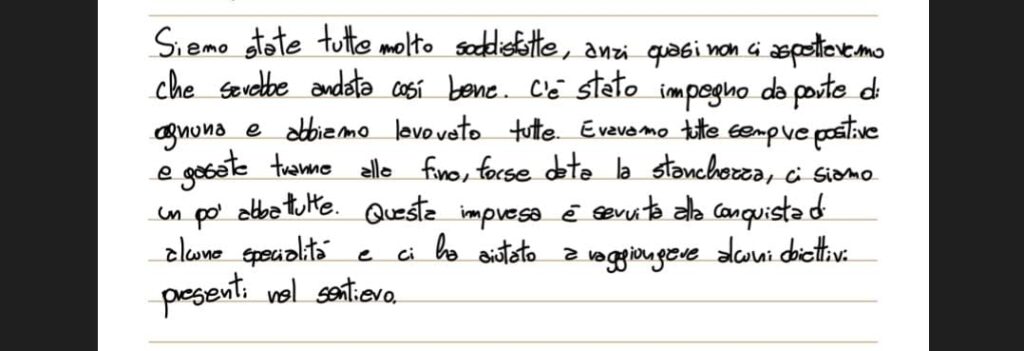 Siamo state tutte molto soddisfatte, anzi quasi non ci aspettavamo
che sarebbe andata così bene. C'è stato impegno da parte di
ognuna e abbiamo lavorato tutte. Eravamo tutte sempre positive
e gasate tranne alla fine, forse data la stanchezza, ci siamo
un po' abbattute. Questa impresa è servita alla conquista di
alcune specialità e ci ha aiutato a raggiungere alcuni obiettivi
presenti nel sentiero.